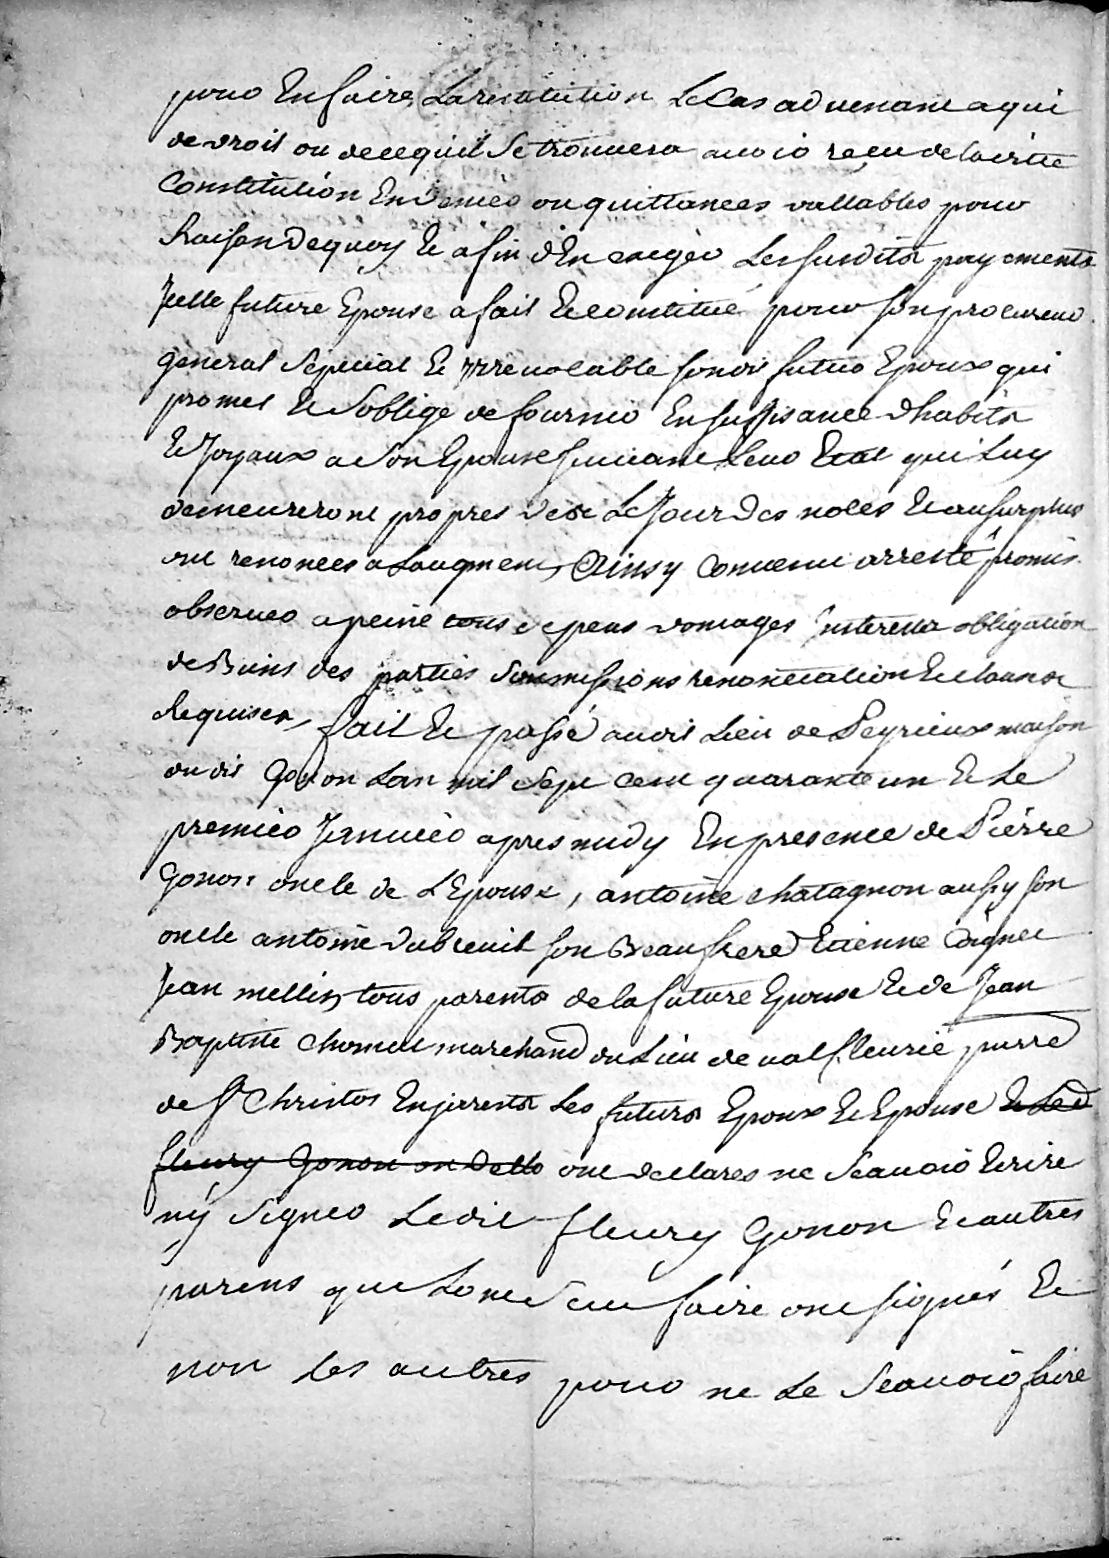 pour En faire La restitution Le Cas advenant a qui
de droit ou de ce quil Se trouvera avoir reçu de la ditte
Constitution En deniers ou quittances vallables pour
Raison de quoy Et afin d'En exiger Les susdits payements
Jcelle future Epouse a fait Et constitué pour son procureur
general Sepecial Et irrevocable son dit futur Epoux qui
promet Et Soblige de fournir En suffisance dhabits
Et Joyaux a Son Epouse suivant Leur Etat qui Luy
demeureront propres des Le Jour des noces Et au surplus
ont renoncés a Laugment, Ainsy Convenu arresté promis
observer a peine tous depens domages Jnterests obligation
de Biens des parties Soumissions renonciation Et clauses
Requises, fait Et passé au dit Lieu de Peyrieux maison
du dit Gonon Lan mil Sept cent quarante un Et Le
premier Janvier apres midy En presence de Pierre
Gonon oncle de L'Epouse, antoine chatagnon aussy son
oncle antoine dubreuil son Beaufrere Etienne
Jean mellin, tous parents de la future Epouse Et de Jean
Baptiste Chomel marchand du Lieu de valfleurie parre
de St Christos En jarests Les futurs Epoux Et Epouse Et Led
fleury Gonon ont declares ne Scavoir Ecrire
ny Signer Le dit fleury Gonon Et autres
parens qui Lont Sceu faire ont signés Et
non Les autres pour ne Le Scavoir faire